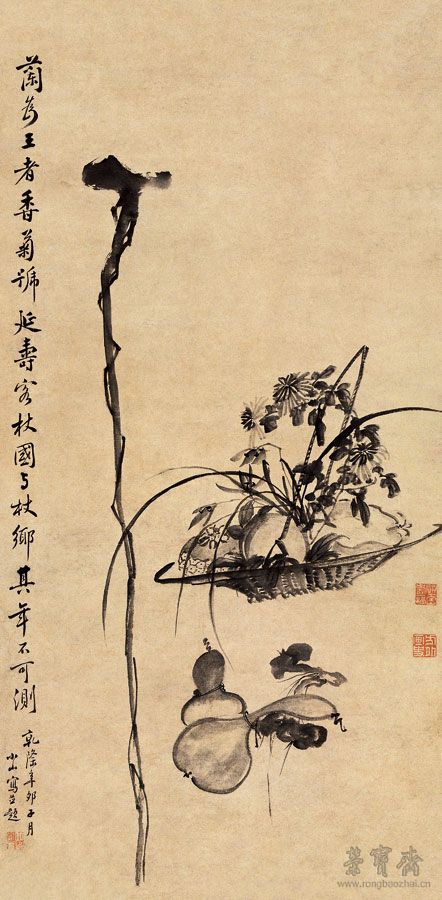 蘭為王者香菊號延壽客杖國与杖鄉其年不可測
乾隆辛卯子月
小山寫並題
榮寶齋
www.rongbaozhai.cn